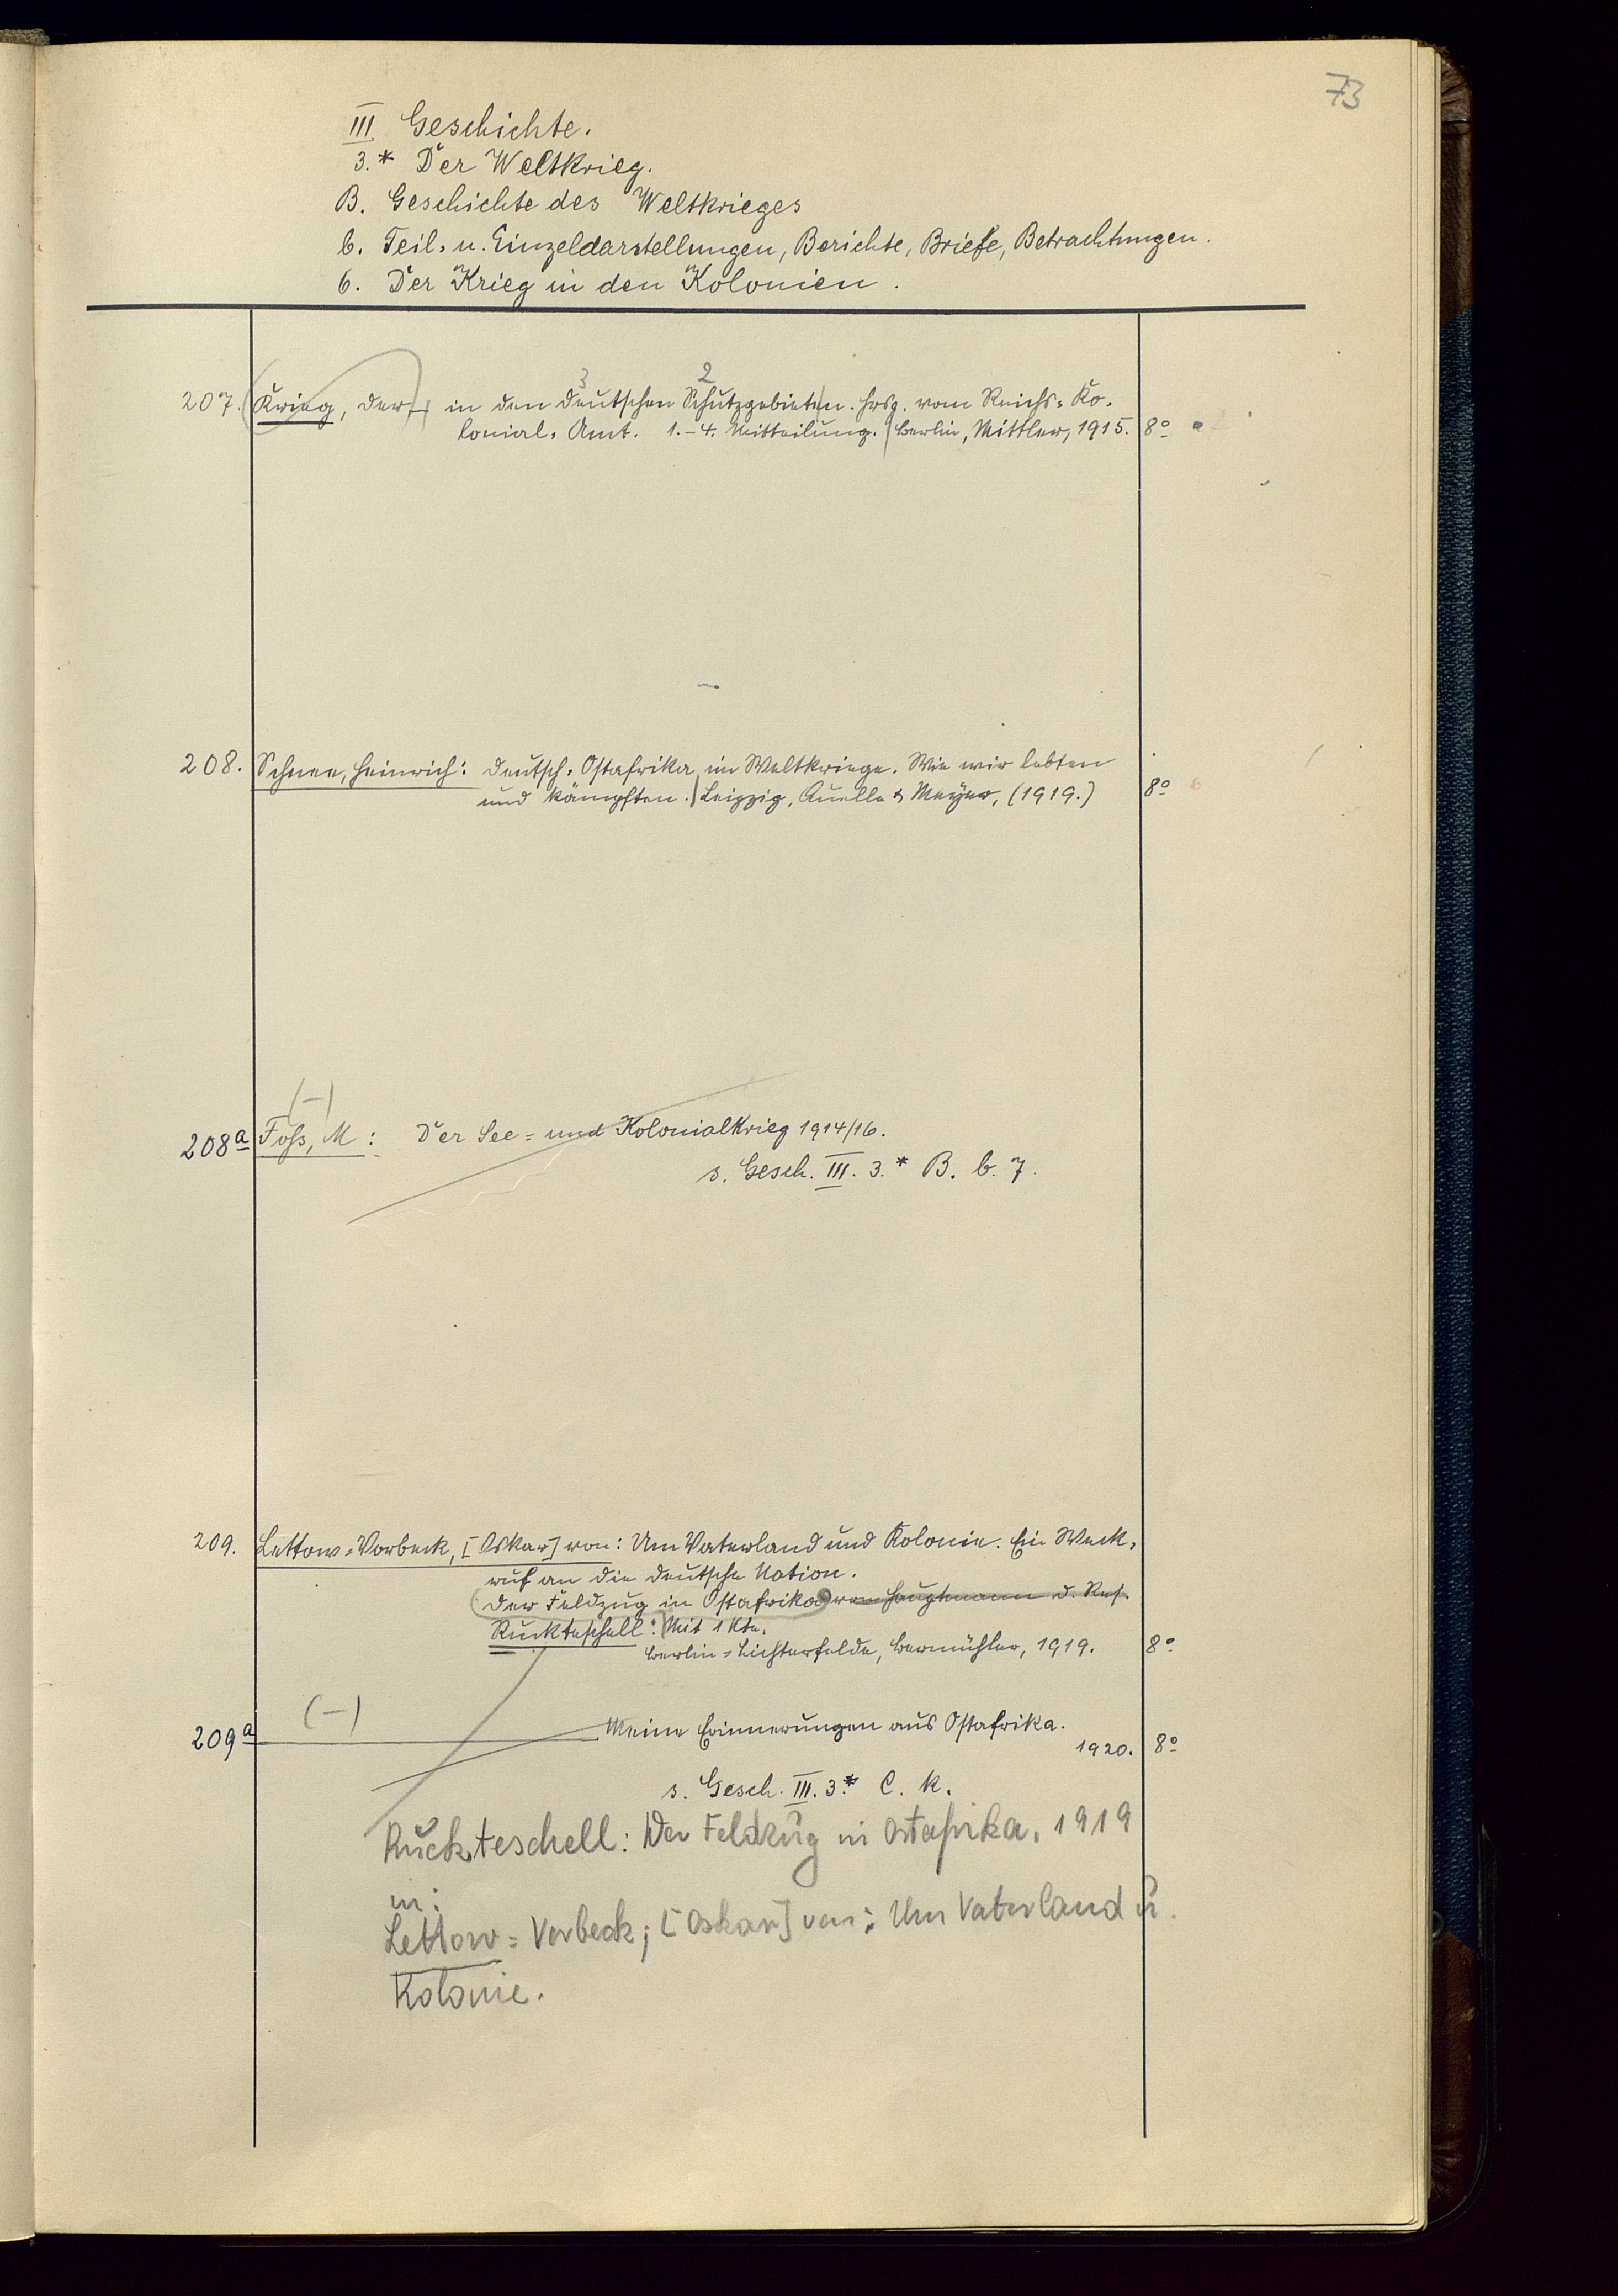 73
III Geschichte.
3.* Der Weltkrieg.
B. Geschichte des Weltkrieges
b. Teil- u. Einzeldarstellungen, Berichte, Briefe, Betrachtungen.
6. Der Krieg in den Kolonien.
3 2
207. Krieg, der, in den deutschen Schutzgebieten. Hrsg. vom Reichs-Ko-
lonial-Amt. 1.-4. Mitteilung. Berlin, Mittler, 1915. 8°
208. Schnee, Heinrich: Deutsch-Ostafrika im Weltkriege. Wie wir lebten
und kämpften. Leipzig, Quelle & Meyer, (1919.) 8° 6
(-)
208a Foss, M: Der See- und Kolonialkrieg 1914/16.
s. Gesch. III. 3.* B. b. 7.
209. Lettow-Vorbeck, [Oskar] von: Um Vaterland und Kolonie. Ein Weck-
ruf an die deutsche Nation.
(Der Feldzug in Ostafrika) von Hauptmann d. Res.
Ruckteschell: Mit 1 Kte.
Berlin-Lichterfelde, Bermühler, 1919. 8°
(-)
209a Meine Erinnerungen aus Ostafrika.
1920. 8°
s. Gesch. III. 3.* C. k.
Ruckteschell: Der Feldzug in Ostafrika. 1919
in:
Lettow-Vorbeck; [Oskar] von: Um Vaterland u.
Kolonie.